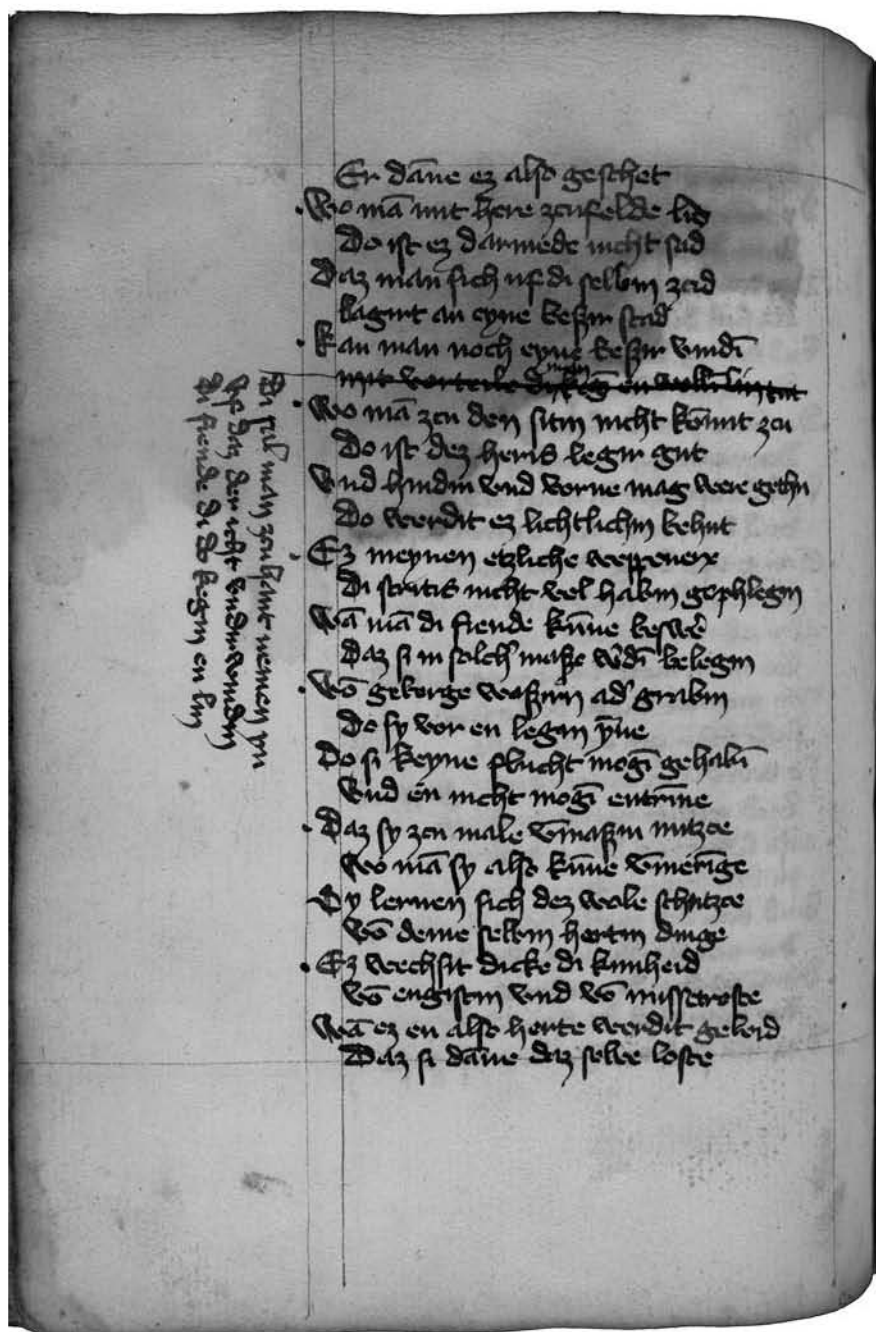 Er dāne ez also geschet
Wo mā mit here zcufelde lid
Do ist ez darmede nicht sad
Daz man sich uf di selbin zcid
Lagirt an eyne beßir stad
Kan man noch eyne beßir vindī
mit vorteile
Wo mā zcu den sitin nicht kōmit zcu
Do ist dez heris legir gut
Vnd hindin vnd vorne mag were gethu
Do werdit ez lichtlichin behut
Ez meynen etzliche wepener
Di stritis nicht vel habin gephlegin
Wā mā di fiende kūne
Daz si in solch maße w'dī belegin
Vō geberge waßirn ad' grabin
Do sy vor en legin yñe
Do si keyne flucht mogī gehabī
Vnd en nicht mogī entrīne
Daz sy zcu male nutzce
Wo mā sy also kūne
Dy lernen sich dez wole schutzce
Vō deme selbin hertin dinge
Ez wechsit dicke di kunheid
Vō engistin vnd vō missetroste
Wā ez en also herte werdit geleid
Daz si dāne daz selbe loste
Di sal man zcuhant nemen yn
Uf daz der icht vndirwindin
Di fiende di do kegin en lin